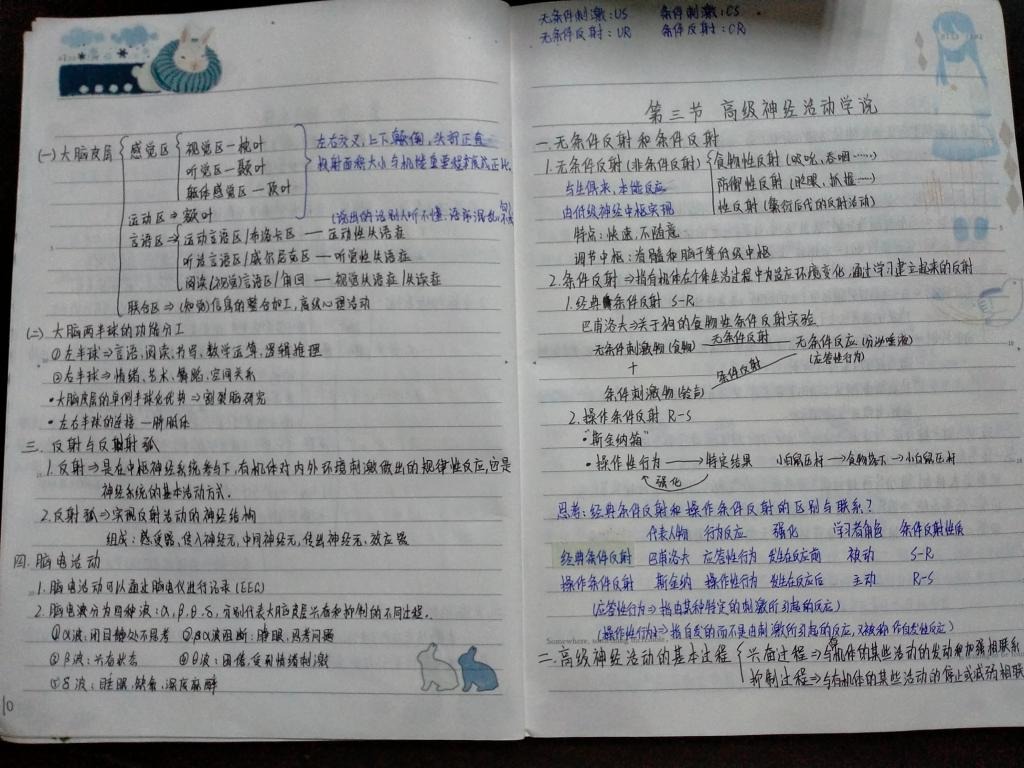 (一) 大脑皮层
感觉区
视觉区—枕叶
听觉区—颞叶
躯体感觉区—顶叶
左右交叉,上下颠倒,头部正立
投射面积大小与机体重要程度成正比
运动区⇒额叶
(说出的话别人听不懂,语无混乱
言语区⇒
运动言语区/布洛卡区——运动性失语症
听觉言语区/威尔尼克区——听觉性失语症
阅读(视觉)言语区/角回——视觉失语症/失读症
联合区⇒(知觉)信息的整合加工,高级心理活动
(二) 大脑两半球的功能分工
①左半球⇒言语,阅读,书写,数学运算,逻辑推理
②右半球⇒情绪,艺术,舞蹈,空间关系
•大脑皮层的单侧半球化优势⇒割裂脑研究
•左右半球的连接—胼胝体
三. 反射与反射弧
1.反射⇒是在中枢神经系统参与下,有机体对内外环境刺激做出的规律性反应,它是
神经系统的基本活动方式.
2.反射弧⇒实现反射活动的神经结构
组成:感受器,传入神经元,中间神经元,传出神经元,效应器
四. 脑电活动
1.脑电活动可以通过脑电仪进行记录(EEG)
2.脑电波分为四种波:α,β,θ,δ,分别代表大脑皮层兴奋和抑制的不同过程.
①α波:闭目静处不思考 ②α波阻断:睁眼,思考问题
③β波:兴奋状态 ④θ波:困倦,受到情绪刺激
⑤δ波:睡眠,缺氧,深度麻醉
10
无条件刺激:US 条件刺激:CS
无条件反射:UR 条件反射:CR
第三节 高级神经活动学说
一.无条件反射和条件反射
1.无条件反射(非条件反射)
食物性反射(吸吮,吞咽……)
与生俱来,本能反应
防御性反射(眨眼,抓握……)
由低级神经中枢实现
性反射(繁衍后代的反射活动)
特点:快速,不随意
调节中枢:脊髓和脑干等低级中枢
2.条件反射⇒指有机体在个体生活过程中为适应环境变化,通过学习建立起来的反射
1.经典条件反射 S-R
巴甫洛夫⇒关于狗的食物性条件反射实验
无条件刺激物(食物) 无条件反射 无条件反应(分泌唾液)
+ 条件反射 (应答性行为)
条件刺激物(铃声)
2.操作条件反射 R-S
“斯金纳箱”
•操作性行为 ⟶ 特定结果 小白鼠压杆→食物落下→小白鼠压杆
强化
思考:经典条件反射和操作条件反射的区别与联系?
代表人物 行为反应 强化 学习者角色 条件反射性质
经典条件反射 巴甫洛夫 应答性行为 发生在反应前 被动 S-R
操作条件反射 斯金纳 操作性行为 发生在反应后 主动 R-S
(应答性行为⇒指由某种特定的刺激所引起的反应)
(操作性行为⇒指自发的而不是由刺激所引起的反应,又被称作自发性反应)
Somewhere,
二.高级神经活动的基本过程
兴奋过程⇒与有机体的某些活动的发动和加强相联系
抑制过程⇒与有机体的某些活动的停止或减弱相联